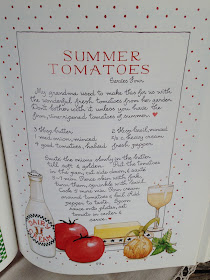 SUMMER
TOMATOES
My grandma used to make this for us with
the wonderful fresh tomatoes from her garden.
Don't bother with it unless you have the
firm, vine-ripened tomatoes of summer. ♥
3 Tbsp. butter
1 med. onion, minced
4 good tomatoes, halved
2 Tbsp. basil, minced
½ c. heavy cream
fresh pepper
Sauté the onions slowly in the butter
till soft & golden. Put the tomatoes
in the pan, cut side down & sauté
Turn them, sprinkle with basil.
Cook 5 more min. Pour cream
around tomatoes & boil. Add
to taste. Spoon
sauce onto plates, set
tomato in center &
serve. ♥